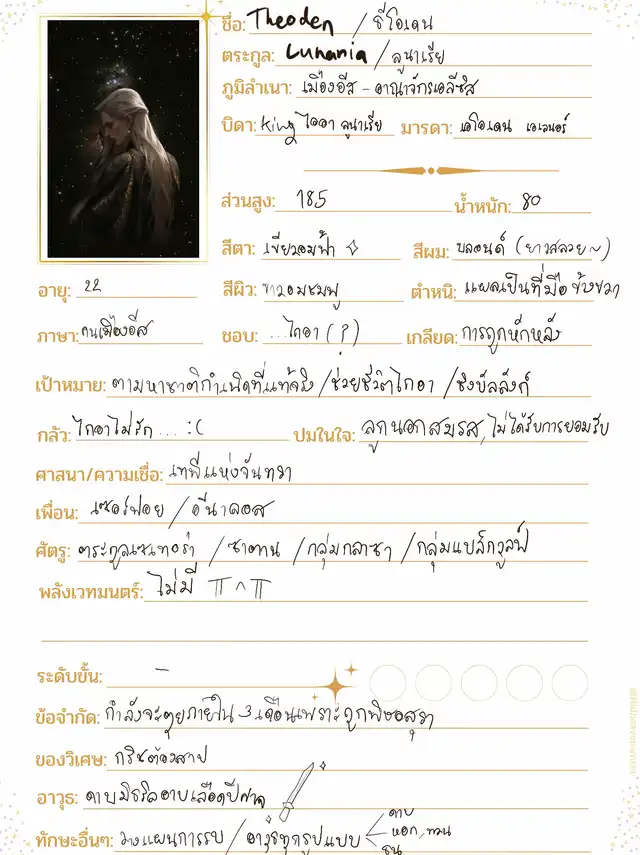 ชื่อ: Theoden / ธีโอเดน
ตระกูล: Lunaria / ลูนาเรีย
ภูมิลำเนา: เมืองอีส - อาณาจักรเอลีซิส
บิดา: King ไออา ลูนาเรีย มารดา: เอโอเดน เอเลนอร์
ส่วนสูง: 185 น้ำหนัก: 80
สีตา: เขียวอมฟ้า สีผม: บลอนด์ (ยาวสลวย~)
อายุ: 22 สีผิว: ขาวอมชมพู ตำหนิ: แผลเป็นที่มือข้างขวา
ภาษา: คนเมืองอีส ชอบ: ...ไกอา (?) เกลียด: การถูกหักหลัง
เป้าหมาย: ตามหาชาติกำเนิดที่แท้จริง / ช่วยชีวิตไกอา / ชิงบัลลังก์
กลัว: ไกอาไม่รัก... :( ปมในใจ: ลูกนอกสมรส, ไม่ได้รับการยอมรับ
ศาสนา/ความเชื่อ: เทพีแห่งจันทรา
เพื่อน: เซอร์ฟอย / อีนาดอส
ศัตรู: ตระกูลเซนทอร่า / ซาตาน / กลุ่มกลาซา / กลุ่มแบล็กวูลฟ์
พลังเวทมนตร์: ไม่มี TT ^ TT
ระดับขั้น: -
ข้อจำกัด: กำลังจะตุยภายใน 3 เดือนเพราะถูกพิษอสุรา
ของวิเศษ: กริชต้องสาป
อาวุธ: ดาบมิธริลอาบเลือดปีศาจ
ทักษะอื่นๆ: วางแผนการรบ / อาวุธทุกรูปแบบ
ดาบ
หอก, ทวน
ธนู